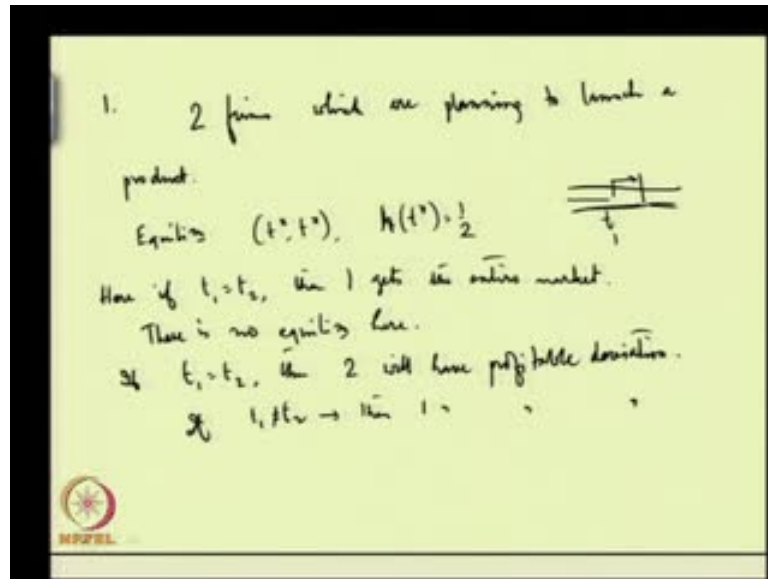 1. 2 firms which are planning to launch a
product.
Equilib (t*, t*), h(t*) = 1/2
t1
Here if t1 = t2, then 1 gets the entire market.
There is no equilib here.
If t1 = t2, then 2 will have profitable deviation.
If t1 ≠ t2 → then 1 " " "
NPTEL